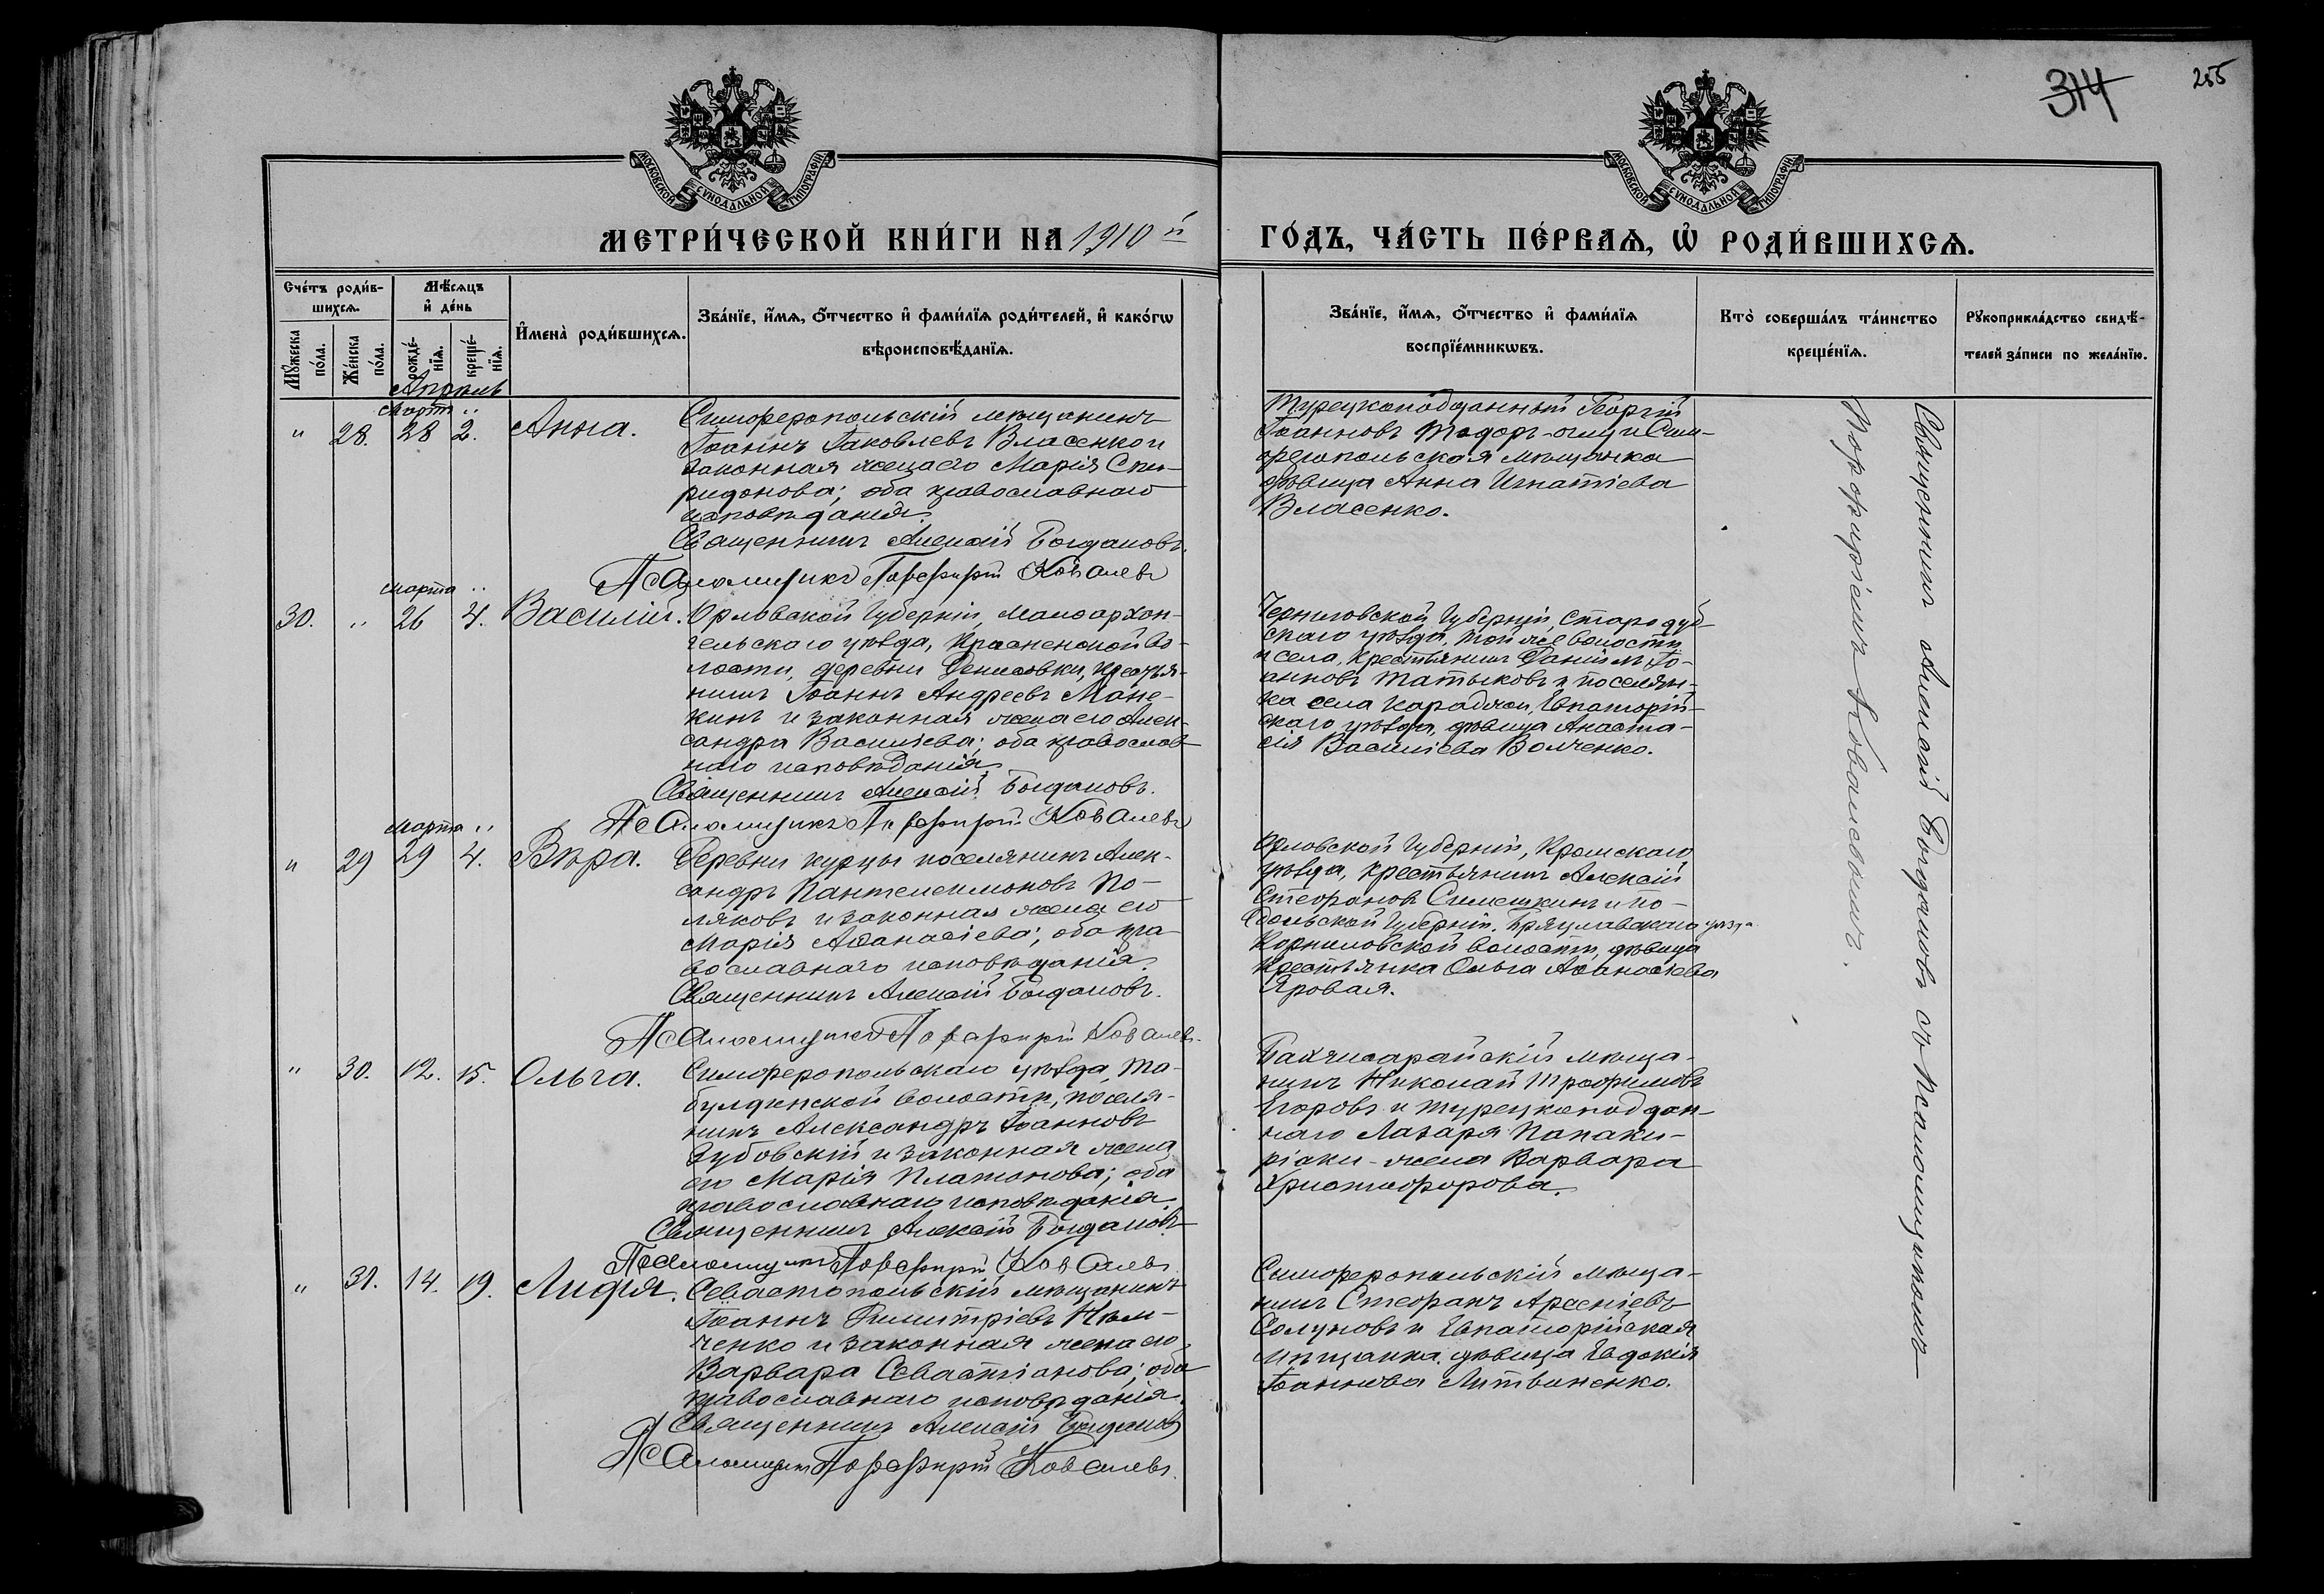 314
255
МОСКОВСКОЙ СѴНОДАЛЬНОЙ ТИПОГРАФІИ
МОСКОВСКОЙ СѴНОДАЛЬНОЙ ТИПОГРАФІИ
МЕТРИ́ЧЕСКОЙ КНИ́ГИ НА 1910й ГО́ДЪ, ЧА́СТЬ ПЕ́РВАѦ, Ѡ҆ РОДИ́ВШИХСѦ.
Сче́тъ роди́в-
шихсѧ.
Мꙋ́жеска
по́ла.
Же́нска
по́ла.
Мѣ́сѧцъ
и҆ де́нь
рожде́-
нїѧ.
креще́-
нїѧ.
И҆мена̀ роди́вшихсѧ.
Зва́нїе, и҆́мѧ, ѻ҆́тчество и҆ фами́лїѧ роди́телей, и҆ како́гѡ
вѣроисповѣ́данїѧ.
Зва́нїе, и҆́мѧ, ѻ҆́тчество и҆ фами́лїѧ
воспрїе́мникѡвъ.
Кто̀ соверша́лъ та́инство
креще́нїѧ.
Рꙋкоприкла́дство свидѣ́-
телей за́писи по жела́нїю.
Апрѣль
Мартъ "
" 28. 28 2. Анна.
Симферопольскій мѣщанинъ
Іоаннъ Іаковлевъ Власенко и
законная жена его Марія Спи-
ридонова; оба православнаго
исповѣданія.
Священникъ Алексій Богдановъ.
Псаломщикъ Порфирій Ковалевъ
Турецкоподданный Георгій
Іоанновъ Тодоръ-оглу и Сим-
феропольская мѣщанка
дѣвица Анна Игнатіева
Власенко.
Марта "
30. " 26 4. Василій.
Орловской губерніи, Малоархан-
гельскаго уѣзда, Красненской во-
лости, деревни Денисовки, крестья-
нинъ Іоаннъ Андреевъ Мане-
кинъ и законная жена его Алек-
сандра Василіева; оба православ-
наго исповѣданія
Священникъ Алексій Богдановъ.
Псаломщикъ Порфирій Ковалевъ
Черниговской губерніи, Стародуб-
скаго уѣзда, той же волости
и села, крестьянинъ Даніилъ Іо-
анновъ Татыковъ и поселян-
ка села Караджи, Евпаторій-
скаго уѣзда, дѣвица Анаста-
сія Василіева Волченко.
Марта "
" 29 29 4. Вѣра.
Деревни Курцы поселянинъ Алек-
сандръ Пантелеимоновъ По-
ляковъ и законная жена его
Марія Аѳанасіева; оба пра-
вославнаго исповѣданія.
Священникъ Алексій Богдановъ.
Псаломщикъ Порфирій Ковалевъ.
Орловской губерніи, Кромскаго
уѣзда, крестьянинъ Алексій
Стефановъ Симешкинъ и По-
дольской губерніи, Брацлавскаго уѣзда
волости, дѣвица
крестьянка Ольга Аѳанасіева
Яровая.
" 30. 12. 15. Ольга.
Симферопольскаго уѣзда, Та-
булдинской волости, поселя-
нинъ Александръ Іоанновъ
Зубовскій и законная жена
его Марія Платонова; оба
православнаго исповѣданія.
Священникъ Алексій Богдановъ.
Псаломщикъ Порфирій Ковалевъ
Бахчисарайскій мѣща-
нинъ Николай Трофимовъ
Егоровъ и турецкоподдан-
наго Лазаря Папаки-
ріаки - жена Варвара
Христофорова.
" 31. 14. 19. Лидія.
Севастопольскій мѣщанинъ
Іоаннъ Димитріевъ Нѣм-
ченко и законная жена его
Варвара Севастіанова; оба
православнаго исповѣданія.
Священникъ Алексій Богдановъ
Псаломщикъ Порфирій Ковалевъ.
Симферопольскій мѣща-
нинъ Стефанъ Арсеніевъ
Солуновъ и Евпаторійская
мѣщанка, дѣвица Евдокія
Іоаннова Литвиненко.
Священникъ Алексій Богдановъ съ псаломщикомъ
Порфиріемъ Ковалевымъ.